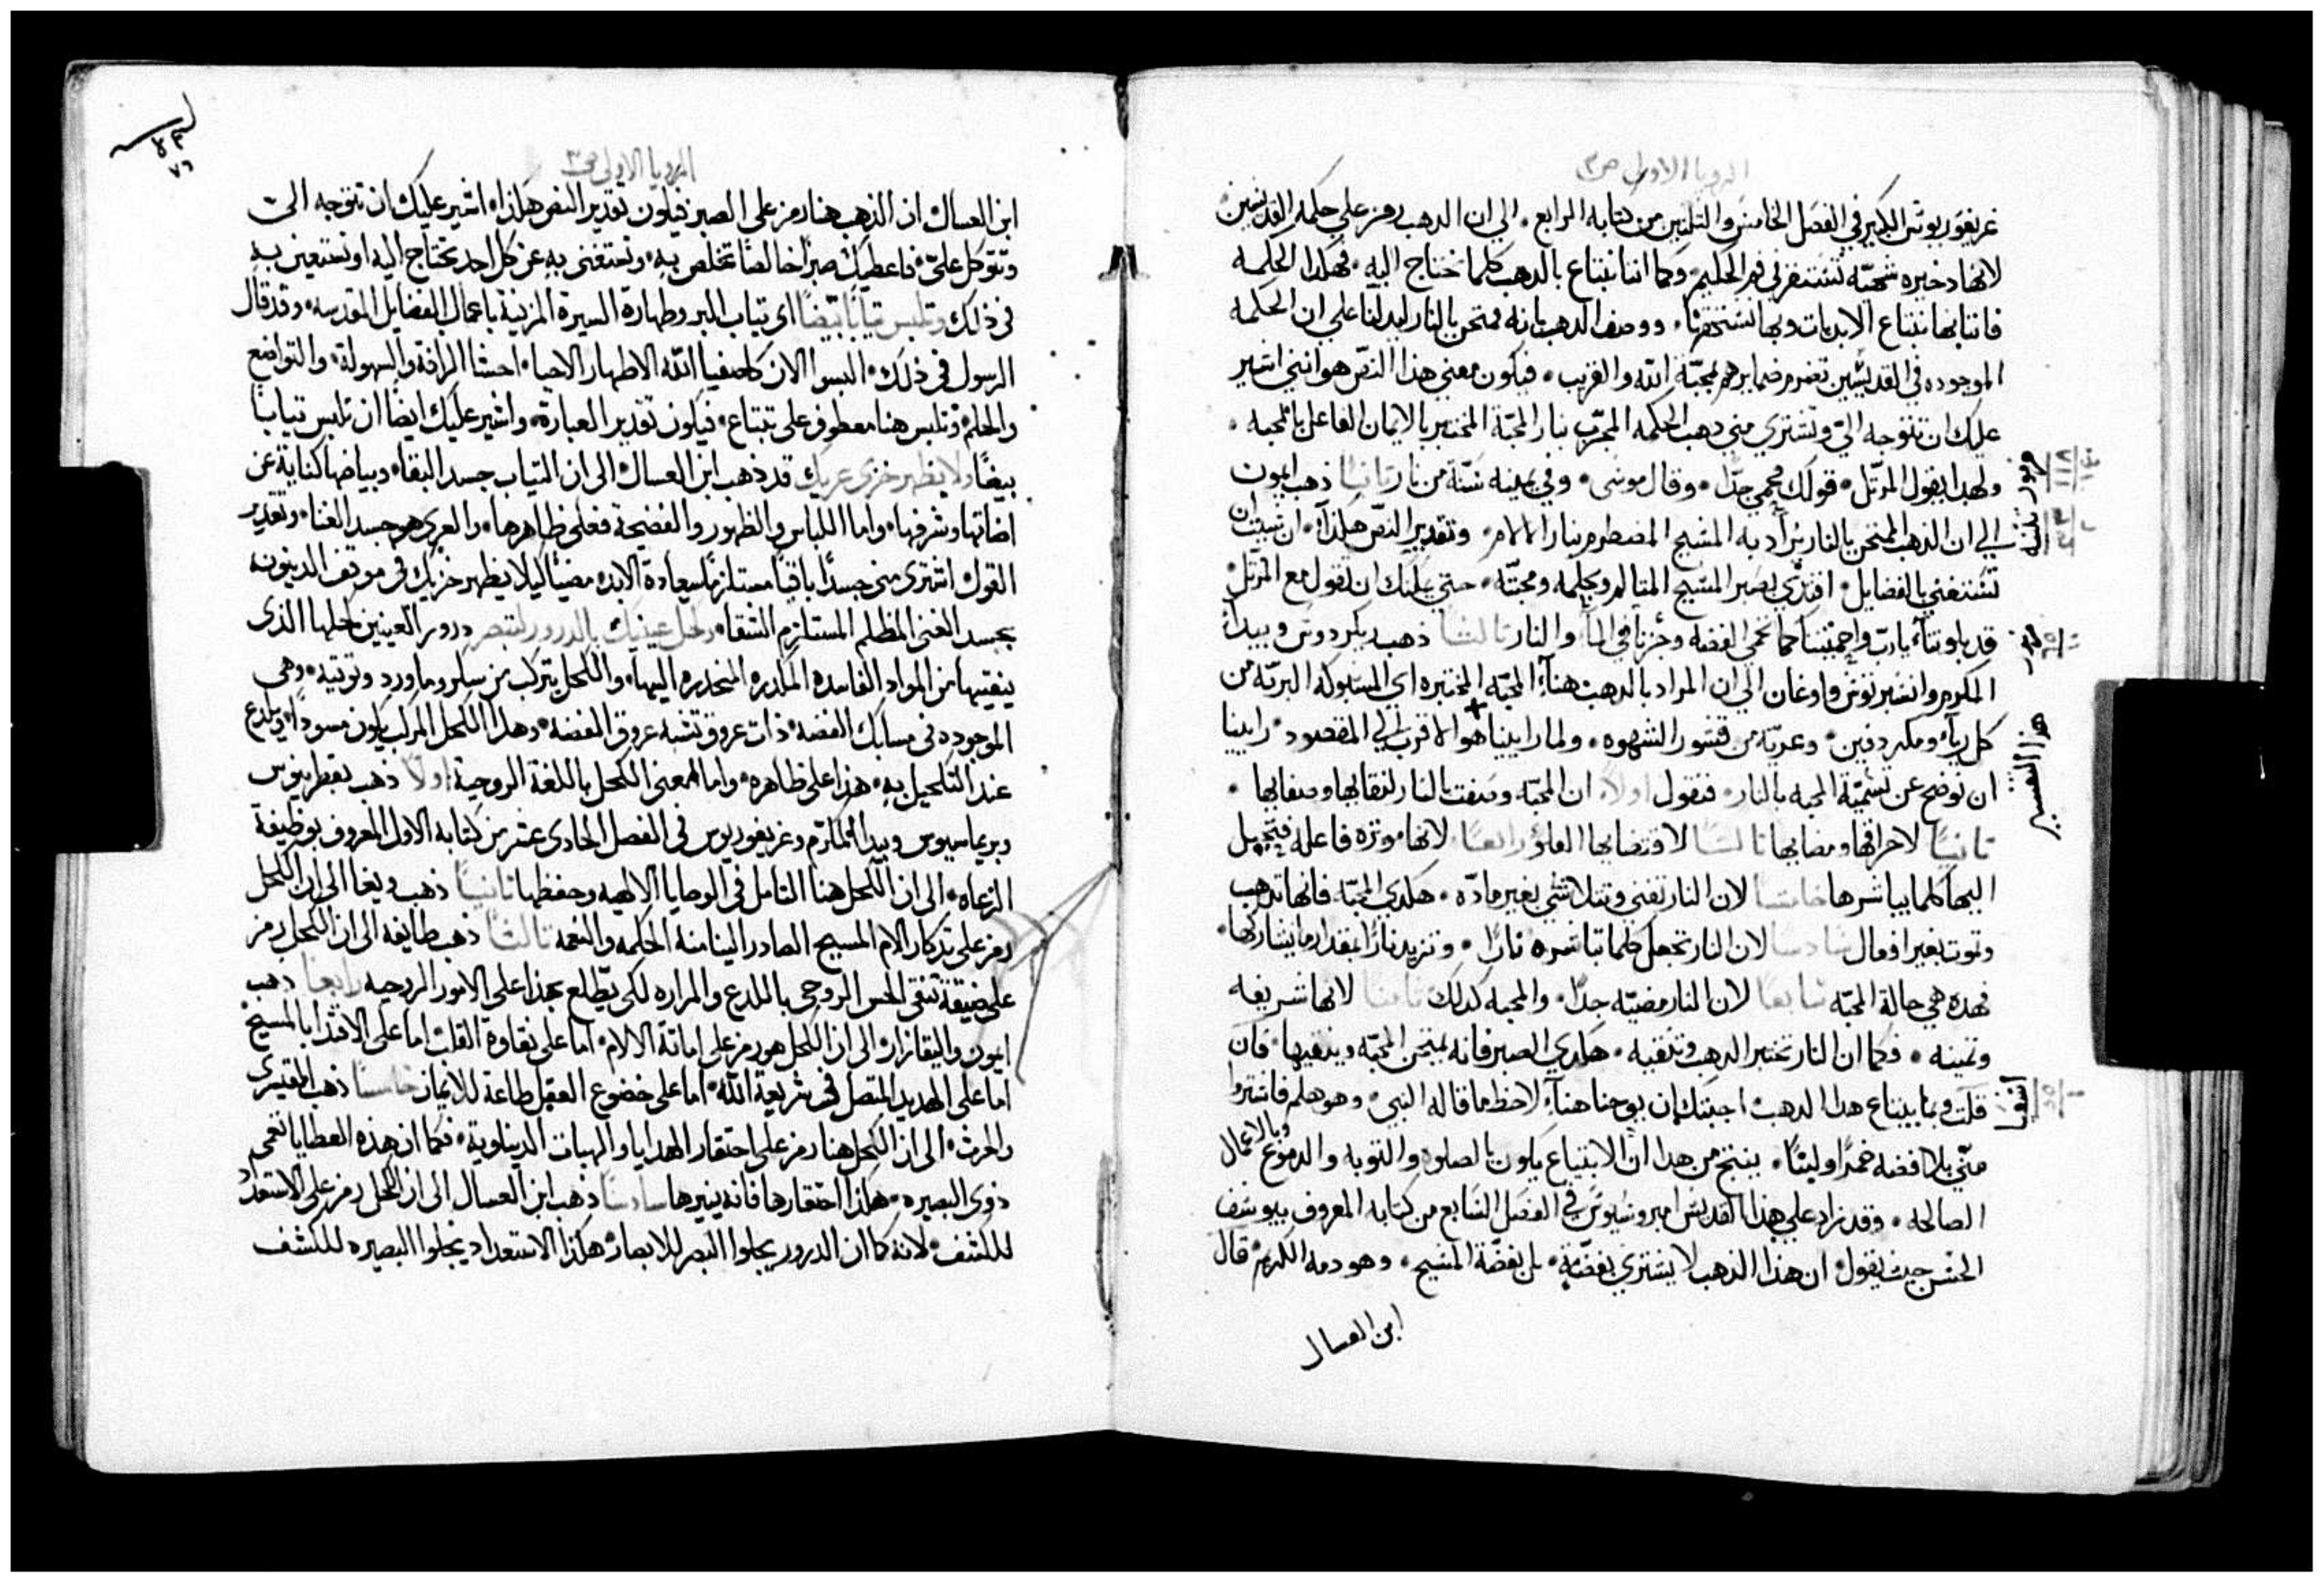 الرويا الاولى ص٣
غريغوريوس الكبير في الفصل الخامس والثلثين من كتابه الرابع. الي ان الدهب رمز علي حكمة القديسين
لانها دخيره شهيّه تستقر في فم الحكيم. وكما اننا نبتاع بالدهب كلما نحتاج اليه. فهكدا الحكمه
فاننا بها نبتاع الابديات وبها نستحقها. ووصف الدهب بانه ممتحن بالنار ليدلنا علي ان الحكمه
الموجوده في القديسين تضرم ضمايرهم بمحبّة الله والقريب. فيكون معني هدا النصّ هو انني اشير
عليك ان تتوجه اليّ وتشتري مني دهب الحكمه المجرّب بنار المحبّة المختبر بالايمان الفاعل بالمحبه.
ولهدا يقول المرتّل. قولك محمي جدّاً. وقال موسي. وفي يمينه سنّة من نار ثانياً ذهب ايمون
الي ان الدهب الممتحن بالنار يُراد به المسيح المضطرم بنار الالام. وتقدير النصّ هكدا. ان شيت ان
تستغني بالفضايل. اقتدي بصبر المسيح المتالم وبحلمه ومحبّته. حتي يمكنك ان تقول مع المرتّل
قد بلوتنا يا ربّ واحميتنا كما تحمي الفضه وجُزنا في الماء والنار ثالثاً ذهب ريكردوس وبيدا
المكرم وانسبرتوس واوغان الي ان المراد بالدهب هنا المحبّه المختبره اي المسبوكه البريّه من
كل رياء ومكر دفين. وعريّه من قشور الشهوه. ولما راينا هدا هو الاقرب الي المقصود. راينا
ان نوضح عن تسميّة المحبه بالنار. فنقول اولاً ان المحبّه وصفت بالنار لنقايها وصفايها.
ثانياً لاحراقها ومضايها ثالثاً لاقتضايها العلو رابعاً لانها موثره فاعله فتحيل
اليها كلما يباشرها خامساً لان النار تفني وتتلاشي بغير مادّه. هكدي المحبّه فانها تدهب
وتموت بغير افعال سادساً لان النار تجعل كلما تباشره ناراً. وتزيد ناراً بمقدار ما يشاركها.
فهده هي حالة المحبّه سابعاً لان النار مضيّه جداً. والمحبه كدلك ثامناً لانها شريفه
وثمينه. فكما ان النار تختبر الدهب وتنقيه. هكدي الصبر فانه يمتحن المحبّه وينقيها. فان
قلت وبما يبتاع هدا الدهب اجبتك ان يوحنا هنا لاحظ ما قاله النبي. وهو هلم فاشتروا
منّي بلا فضه خمراً ولبناً. ينتج من هدا ان الابتياع يكون بالصلوة والتوبه والدموع وبالاعمال
الصالحه. وقد زاد علي هدا القديس امبروسيوس في الفصل السابع من كتابه المعروف بيوسف
الحسن حيث يقول ان هذا الذهب لا يشتري بفضّة. بل بفضّة المسيح. وهو دمه الكريم قال
ابن العسال
مزمور
تثنيه
مزمور
هذا التفسير
اشعيا
الرويا الاولى ص٣
ابن العسال ان الذهب هنا رمز على الصبر فيكون تقدير النص هكذا. اشير عليك ان تتوجه الي
وتتوكل عليّ. فاعطيك صبراً خالصاً تخلص به. وتستغنى به عن كل احد يحتاج اليه او تستعين به
فى ذلك وتلبس ثياباً بيضاً اى ثياب البر وطهارة السيرة المزينة باعمال الفضايل المقدسه. وقد قال
الرسول فى ذلك. البسوا الان كاصفيا الله الاطهار الاحبا. احشا الرافة والسهولة. والتواضع
والحلم وتلبس هنا معطوف على تبتاع. فيكون تقدير العبارة. واشير عليك ايضاً ان تلبس ثياباً
بيضاً ولا يظهر خزى عريك قد ذهب ابن العسال الى ان الثياب جسد البقا. وبياضها كناية عن
اضاتها وشرفها. واما اللباس والظهور والفضيحة فعلى ظاهرها. والعرى هو جسد الفنا. وتقدير
القول اشترى منى جسداً باقياً مستلزماً لسعادة الابد مضيئاً ليلا يظهر خزيك فى موقف الدينونه
بجسد الفنى المظلم المستلزم الشقا. وكحل عينيك بالدرور لتبصر درور العينين كحلها الذى
ينقيها من المواد الفاسده المكدره المنحدره اليها. والكحل يتركب من سكر وماورد وتوتيه. وهى
الموجوده فى مسابك الفضه. ذات عروق تشبه عروق الفضه. وهدا الكحل المركب يكون مسوداً. ويلدع
عند التكحيل به. هذا على ظاهره. واما المعنى الكحل باللغة الروحية اولاً ذهب بقطرينوس
وبريماسيوس وبيدا المكرم وغريغوريوس فى الفصل الحادى عشر من كتابه الاول المعروف بوظيفة
الرعاه. الى ان الكحل هنا التامل فى الوصايا الالهيه وحفظها ثانياً ذهب ويغا الى ان الكحل
رمز على تذكار الام المسيح الصادر الينا منه الحكمه والنعمه ثالثاً ذهب طايفه الى ان الكحل رمز
على ضيقة تنقى الحس الروحى باللدع والمراره لكى يطّلع بهذا على الامور الروحيه رابعاً ذهب
ايمون واليقازار الى ان الكحل هو رمز على اماتة الالام. اما على نقاوة القلب اما على الاقتدا بالمسيح
اما على الهديد المتصل فى شريعة الله. اما على خضوع العقل طاعة للايمان خامساً ذهب المقتبرى
والحرث. الى ان الكحل هنا رمز على احتقار الهدايا والهبات الدنياوية. فكما ان هذه العطايا تعمى
ذوى البصيره. هكذا احتقارها فانه ينيرها سادساً ذهب ابن العسال الى ان الكحل رمز على الاستعداد
للكشف. لانه كما ان الدرور يجلوا البصر للابصار. هكذا الاستعداد يجلوا البصيره للكشف